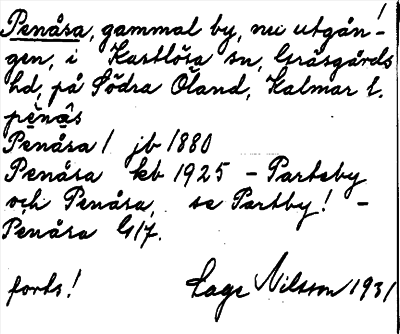 Penåsa, gammal by, nu utgån-
gen, i Kastlösa sn, Gräsgårds
hd, på Södra Öland, Kalmar l.
pẹnås
Penåsa 1 jb 1880
Penåsa kb 1925 - Parteby
och Penåsa, se Partby! -
Penåsa G17.
forts! Lage Nilsson 1931